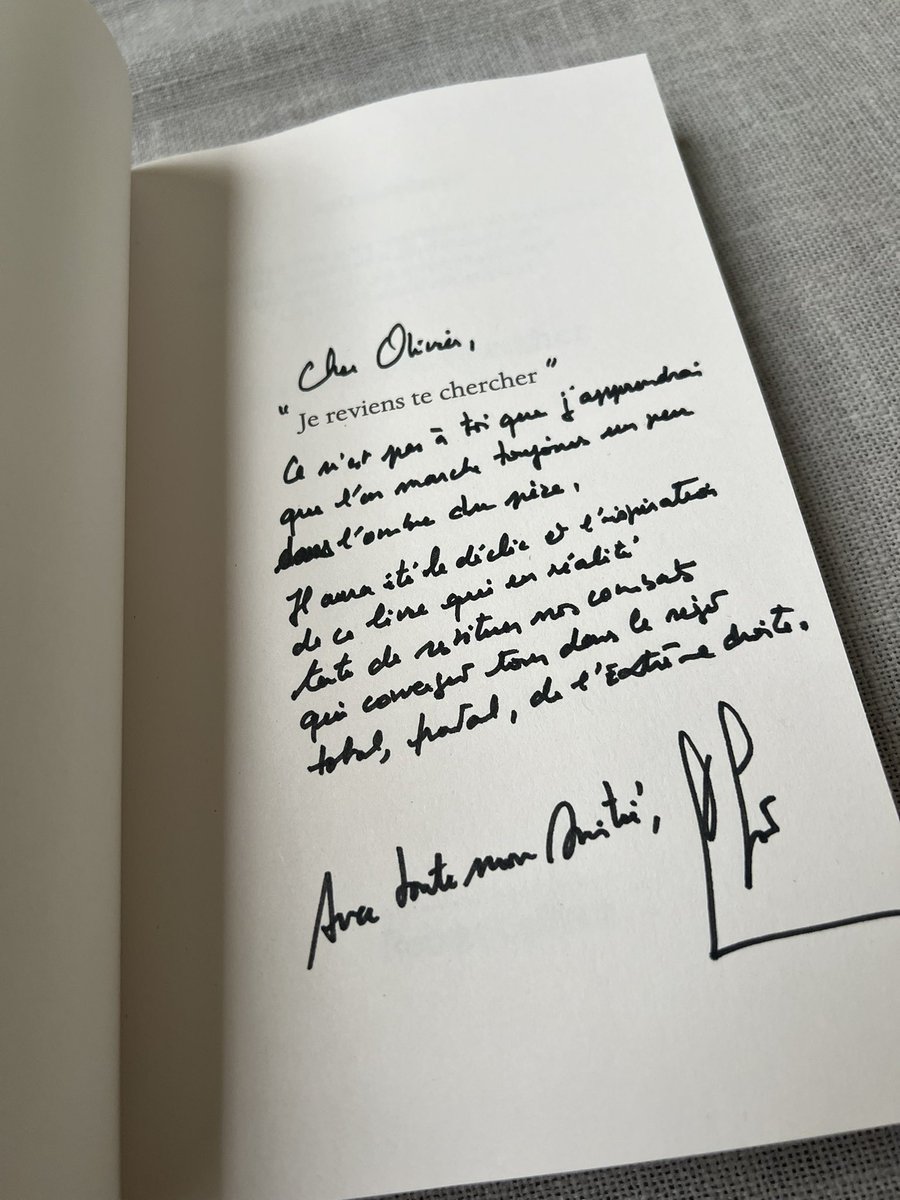 Cher Olivier,
" Je reviens te chercher "
Ce n'est pas à toi que j'apprendrai
que l'on marche toujours un peu
dans l'ombre du père.
Il aura été le déclic et l'inspiration
de ce livre qui en réalité
tente de restituer nos combats
qui convergent tous dans le rejet
total, frontal, de l'Extrême droite.
Avec toute mon Amitié,